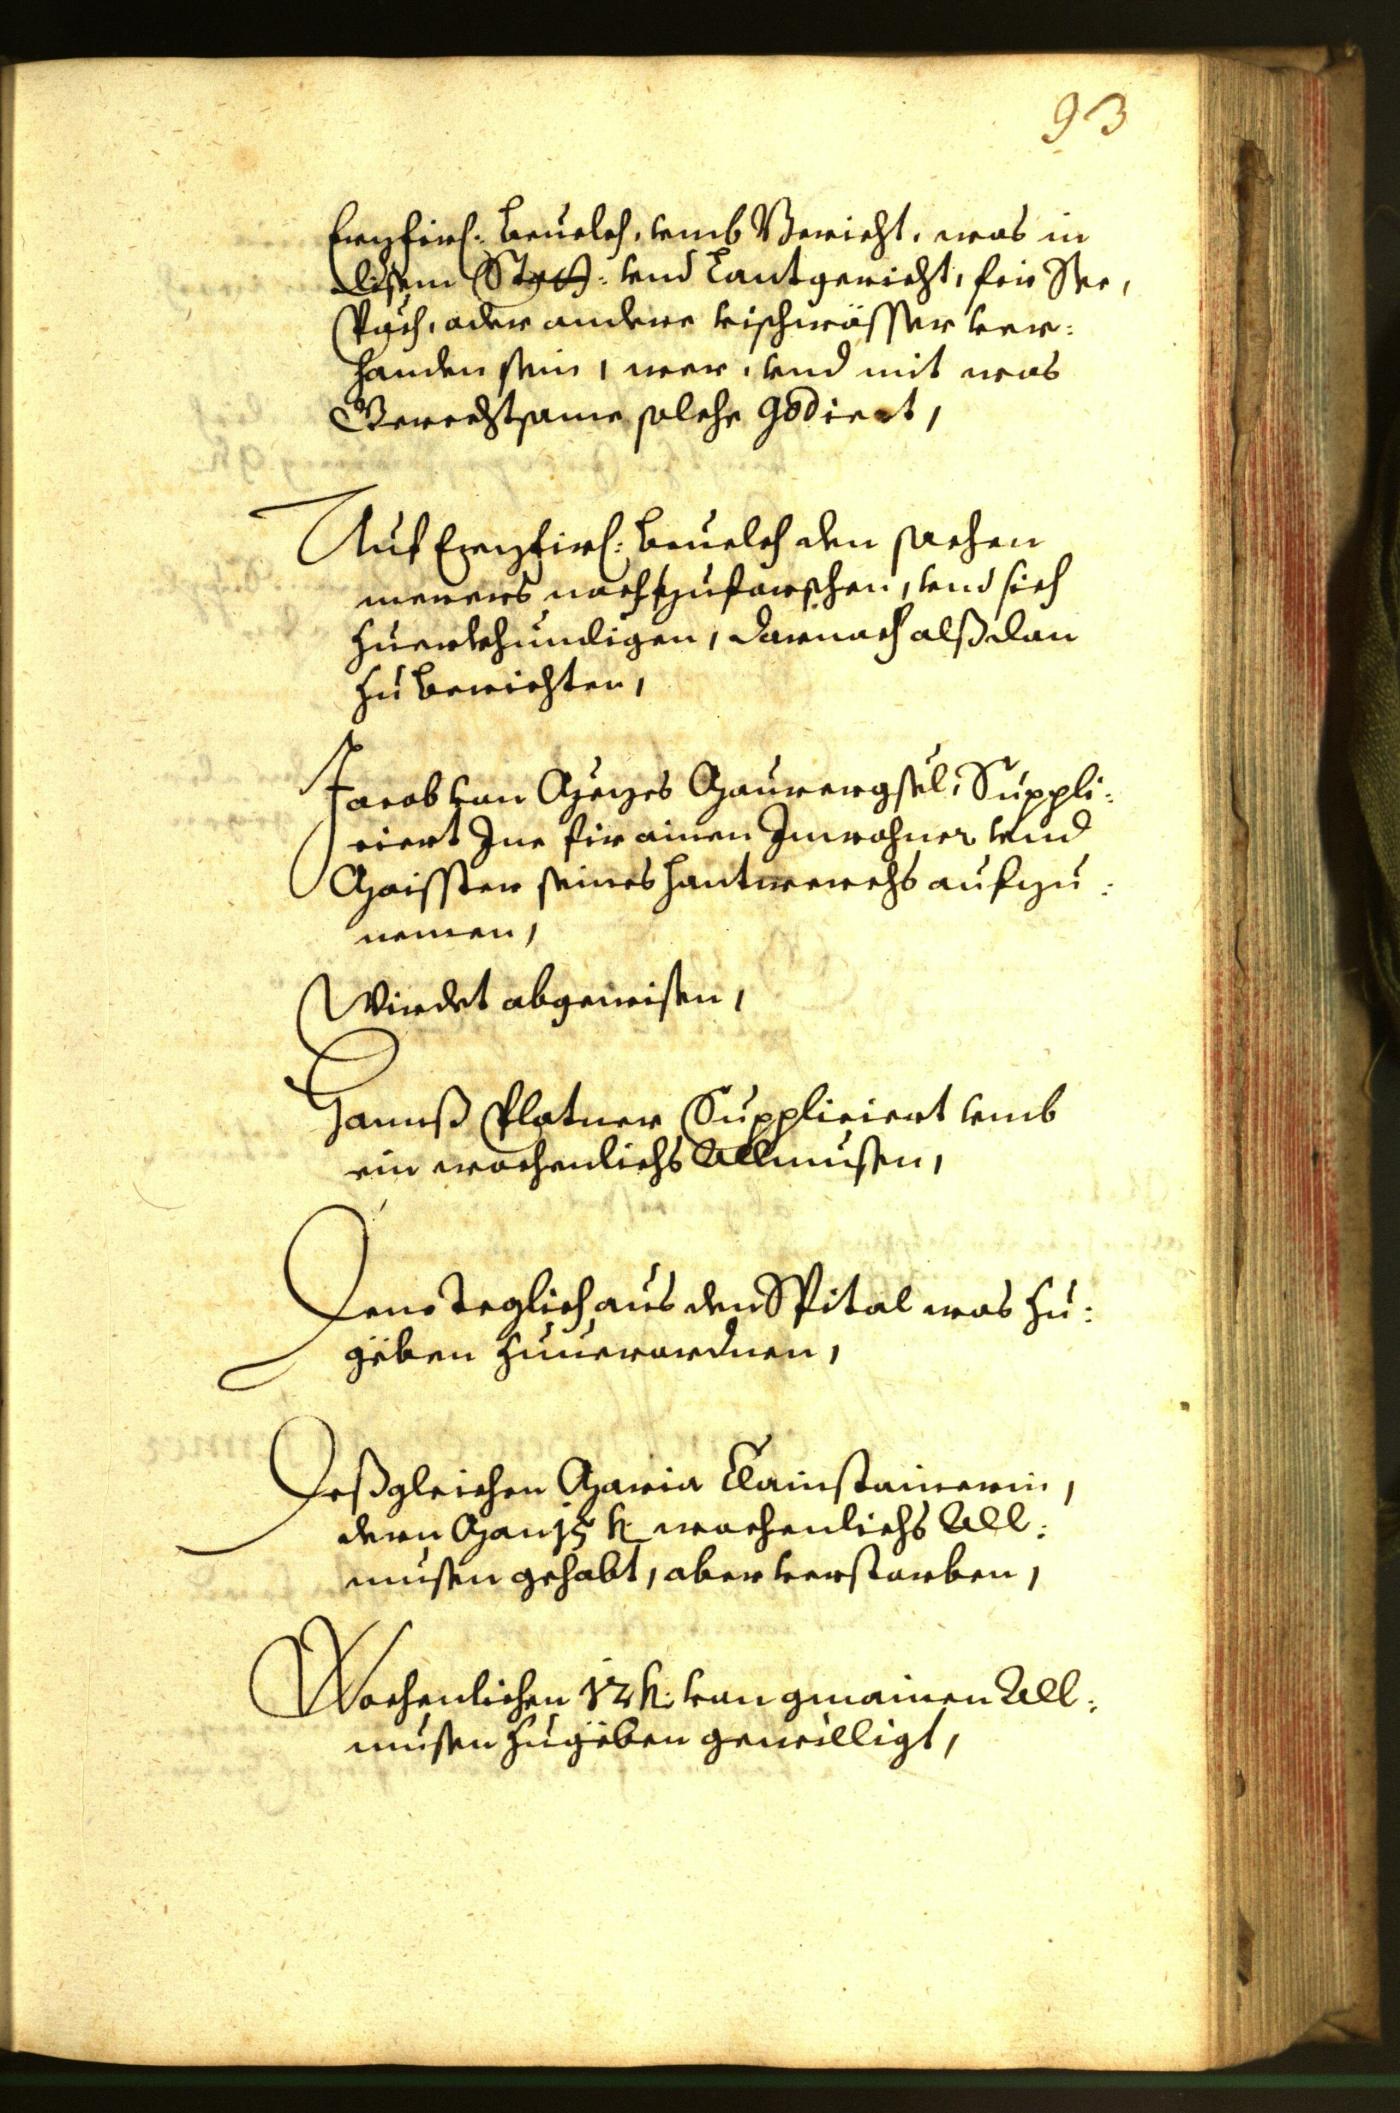 93
Erzfirl: beuelch, vmb Bericht, was in
disem Statt: vnd Lantgericht, fir See,
Päch, oder andere vischwässer ver:
handen sein, wer, vnd mit was
Gerechtsame solche
Auf Erzfirl: beuelch den sachen
merers nachzuforschen, vnd sich
zuerkhundigen, darnach alß dan
zu berichten,
Jacob von Maurergsel, Suppli:
ciert Ine fir ainen Inwohner vnd
Maisster seines hantwerchs aufzu:
nemen,
Wirdet abgewisen,
Hannß Platner Suppliciert vmb
ein wochenlichs Allmusen,
Deme Teglich aus den Spital was zu:
geben zuuerordnen,
Deßgleichen Maria Clainstainerin,
dern Man 15 k wochenlichs All:
musen gehabt, aber verstorben,
Wochenlichen 12 k: von gmainen All:
musen zugeben gewilligt,